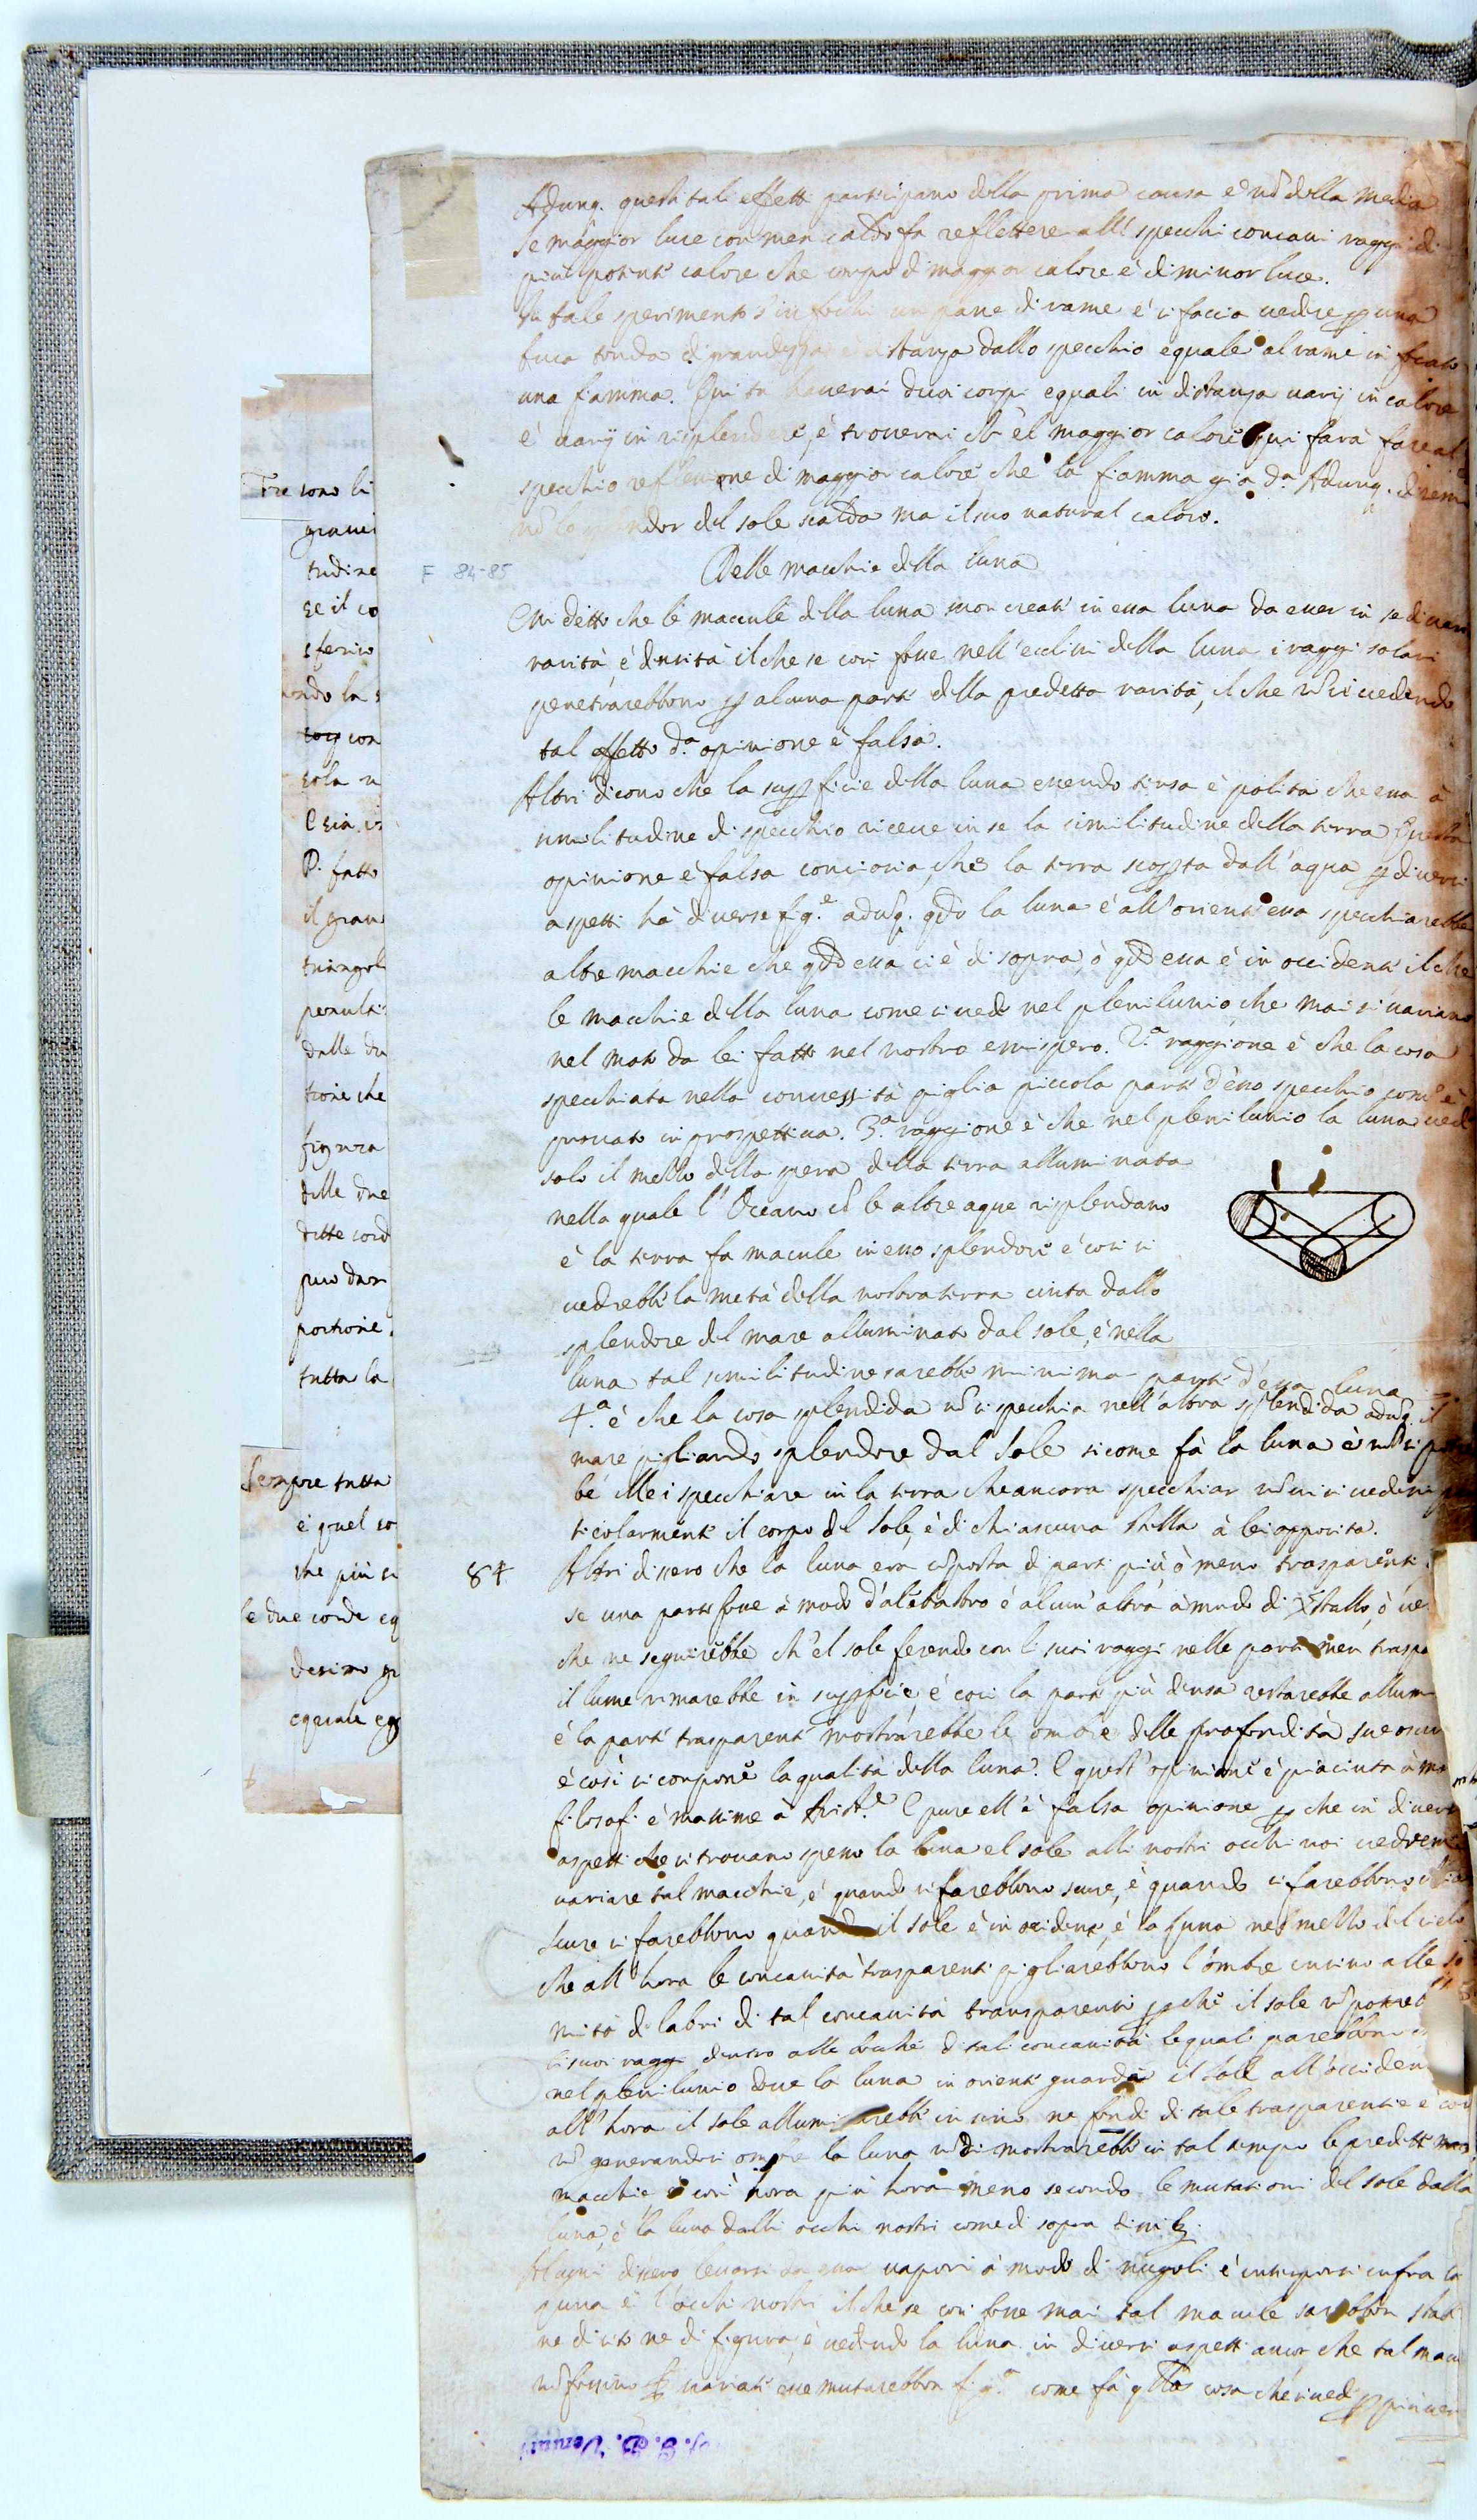 Adunq. questi tali effetti participano della prima causa e nō della media
Se maggior luce con men caldo fa reflettere alli specchi concaui raggi di
più potente calore che corpo di maggior calore è di minor luce.
tale sperimento s'infochi un pane di rame è si faccia uedere ꝑ una
buca tonda di grandezza è distanza dallo specchio equale al rame infocato
una fiamma. Qui tu hauerai duoi corpi equali in distanza uarij in calore
è uarij in risplendere, è trouerai ch'èl maggior calore qui farà fare al
specchio reflessione di maggior calore che la fiamma già d.ª Adunq. diremo
nō lo splendor del sole scalda ma il suo natural calore.
F 84-85
Delle macchie della luna
detto che le maccule della luna son create in essa luna da esser in se di uaria
rarità è densità il che se così fosse nell'eclissi della luna i raggi solari
penetrarebbono ꝑ alcuna parte della predetta rarità, il che nō si uedendo
tal effetto d.ª opinione è falsa.
Altri dicono che la suꝑficie della luna essendo tersa è polita che essa à
similitudine di specchio riceue in se la similitudine della terra Questa
opinione è falsa conciosia, che la terra scoꝑta dall'aqua ꝑ diuersi
aspetti hà diuerse fig.ᵉ adūq. qdo la luna è all'oriente essa specchiarebbe
altre macchie che qdo essa ci è di sopra, ò qdo essa è in occidente il che
le macchie della luna come si uede nel plenilunio che mai si uariano
nel moto da lei fatto nel nostro emispero. 2.ª raggione è che la cosa
specchiata nella conuessità piglia piccola parte d'esso specchio com'è
prouato in prospettiua. 3.ª raggione è che nel plenilunio la luna uede
solo il mezzo della spera della terra alluminata
nella quale l'Oceano cō le altre aque risplendano
è la terra fa macule in esso splendore è così si
uedrebbe la metà della nostra terra cinta dallo
splendore del mare alluminato dal sole, è nella
luna tal similitudine sarebbe minima parte d'essa luna
4.ª è che la cosa splendida nō si specchia nell'altra splendida adūq. il
mare pigliando splendore dal Sole sicome fà la luna è nō si potreb
be in lei specchiare in la terra che ancora specchiar nō ui si uedesse par
ticolarmente il corpo del Sole, è di chiascuna stella à lei opposita.
84
Altri dissero che la luna era cōposta di parti più ò meno trasparenti
se una parte fosse à modo d'alebastro è alcun'altra à modo di Xstallo, ò ue
che ne seguirebbe ch'el sole ferendo con li suoi raggi nella parte men traspa
il lume rimarebbe in suꝑficie, è così la parte più densa restarebbe allum
è la parte trasparente mostrarebbe le ombre delle profondità sue oscur
è così si compone la qualità della luna. E quest'opinione è piaciuta à mo
filosofi è massime à Arist.ᵉ E pure ell'è falsa opinione ꝑ che in diuersi
aspetti che si trouano spesso la luna el sole alli nostri occhi noi uedremo
uariare tal macchie, è quando si farebbono scure, è quando si farebbono chia
scure si farebbono quando il sole è in occidente, è la luna nel mezzo del cielo
che all'hora le concauità trasparenti pigliarebbono l'ombre insino alle so
mità de labri di tal concauità transparenti ꝑ che il sole nō potreb
li suoi raggi dentro alle bocche di tali concauità lequali parebbono
nel plenilunio doue la luna in oriente guarda il sole all'occidente
all'hora il sole alluminarebbe insino ne fondi di tale trasparentie è così
nō generandosi ombre la luna nō di mostrarebbe in tal tempo le predette
macchie, è così hora più hora meno secondo le mutationi del sole dalla
luna, è la luna dalli occhi nostri come di sopra dissi.
Alcuni dissero leuarsi da essa uapori à modo di nugoli è interporsi infra la
luna è l'occhi nostri il che se così fosse mai tal macule sarebbon stabili
ne di sito ne di figura, è uedendo la luna in diuersi aspetti ancor che tal macu
nō fossino uariate esse mutarebbon fig.ª come fà qlla cosa che si uede ꝑ più uersi
Tre sono li
graui
tudine
se il co
sferico
ndo la s
con
sola n
P. fatto
il gran
triangol
dalle du
tione che
figura
delle due
dette cord
puo dar
portione
tutta la
Sempre tutta
è quel co
che più si
le due corde eg
desimo gr
equale eg